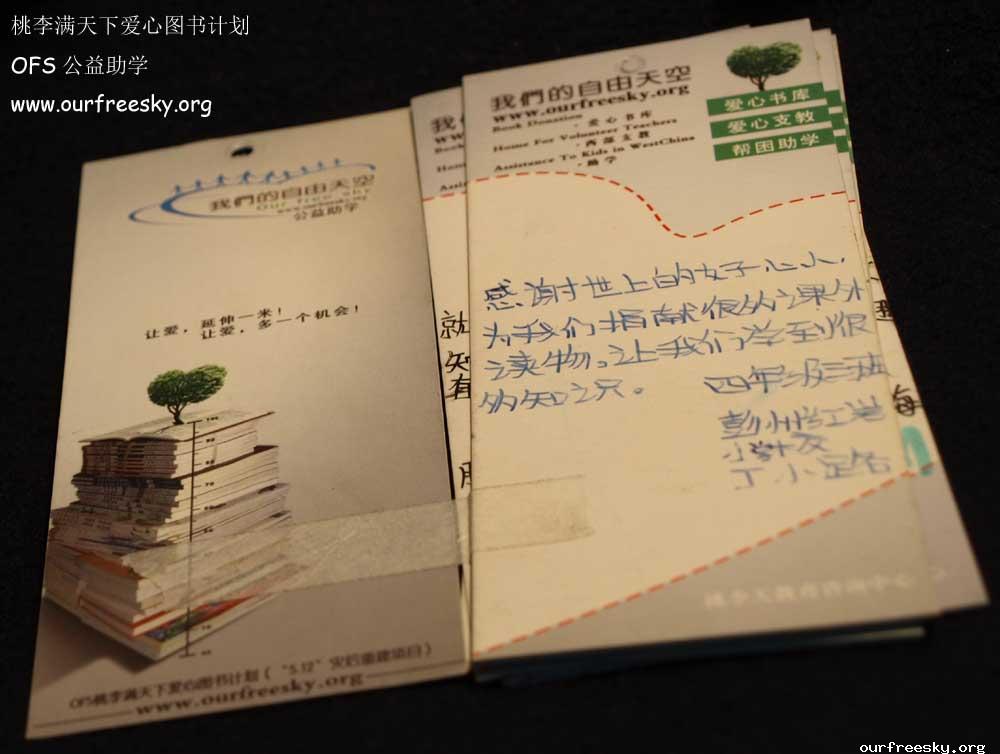 桃李满天下爱心图书计划
OFS 公益助学
www.ourfreesky.org
我們的自由天空
Our free sky
www.ourfreesky.org
公益助学
让爱,延伸一米!
让爱,多一个机会!
OFS桃李满天下爱心图书计划(“5.12”灾后重建项目)
www.ourfreesky.org
我
就
知
有
我們的自由天空
www.ourfreesky.org
Book Donation · 爱心书库
Home For Volunteer Teachers
· 西部支教
Assistance To Kids in WestChina
· 助学
爱心书库
爱心支教
帮困助学
感谢世上的好心人,
为我们捐献很多课外
读物。让我们学到很
多知识。 四年级三班
彭州
小
丁小
海
ourfreesky.org